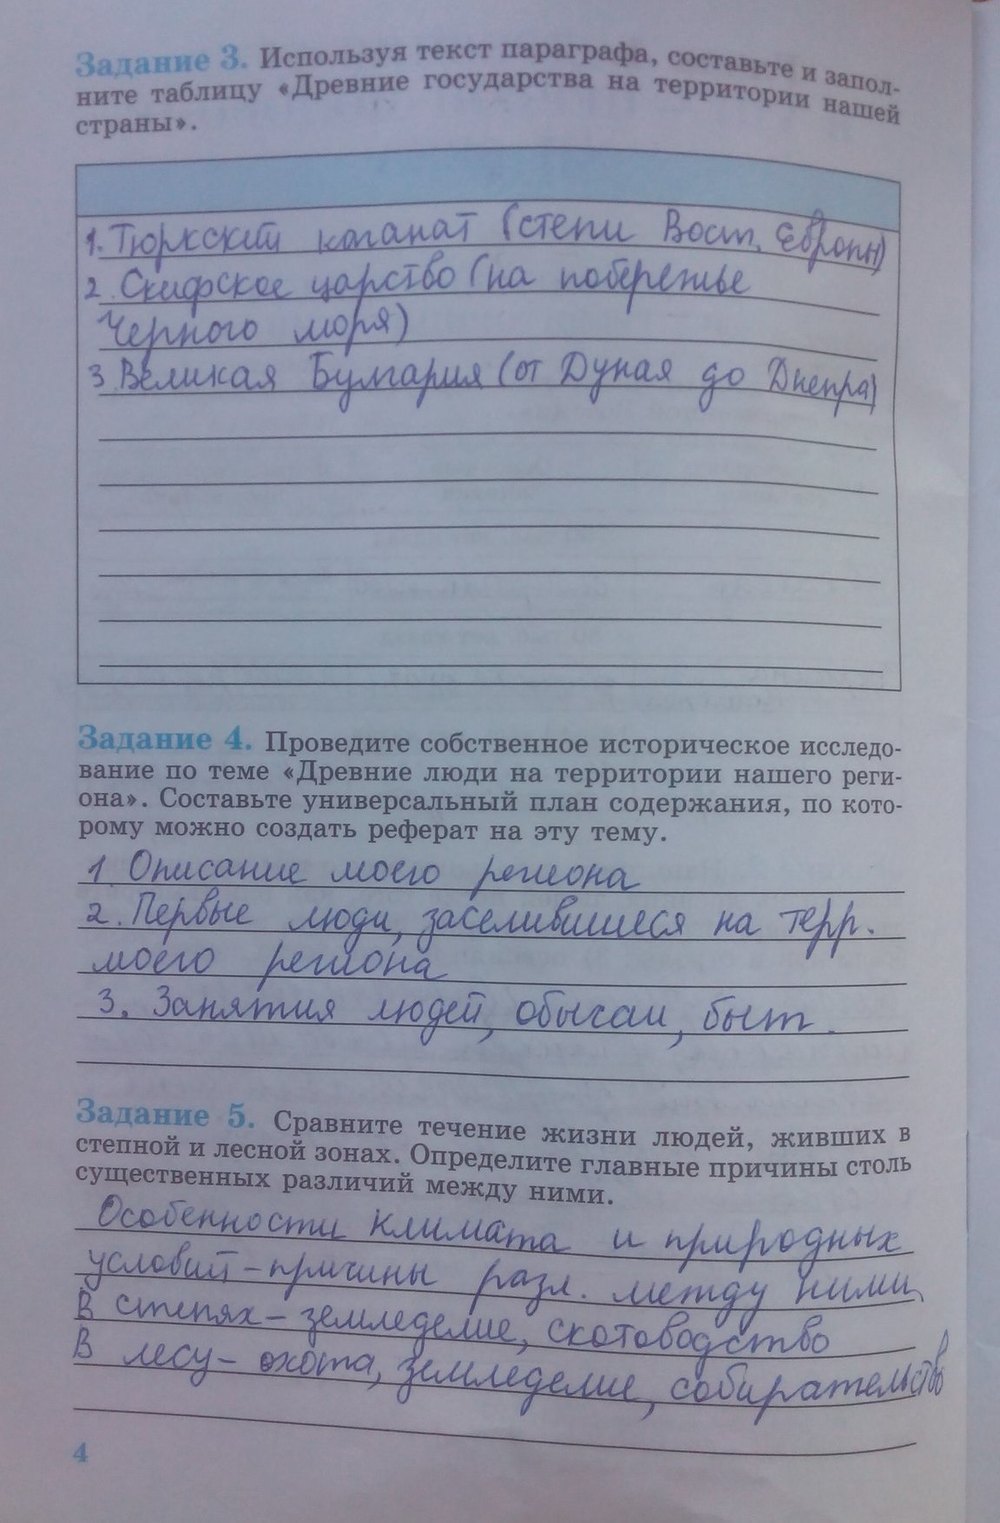 Задание 3. Используя текст параграфа, составьте и запол-
ните таблицу «Древние государства на территории нашей
страны».
1. Тюркский каганат (степи Вост. Европы)
2. Скифское царство (на побережье
Черного моря)
3. Великая Булгария (от Дуная до Днепра)
Задание 4. Проведите собственное историческое исследо-
вание по теме «Древние люди на территории нашего реги-
она». Составьте универсальный план содержания, по кото-
рому можно создать реферат на эту тему.
1. Описание моего региона
2. Первые люди, заселившиеся на терр.
моего региона
3. Занятия людей, обычаи, быт.
Задание 5. Сравните течение жизни людей, живших в
степной и лесной зонах. Определите главные причины столь
существенных различий между ними.
Особенности климата и природных
условий – причины разл. между ними.
В степях – земледелие, скотоводство
В лесу – охота, земледелие, собирательство
4